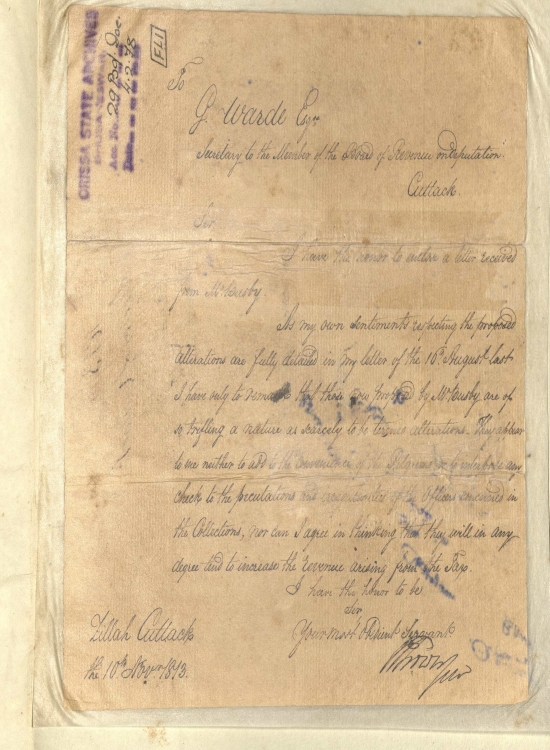 ORISSA STATE ARCHIVES
BHUBANESWAR
Acc. No. 29 Bd Doc.
4.2.78
FLI
To
G. Warde Esqr
Secretary to the Member of the Board of Revenue on deputation
Cuttack.
Sir
I have the honor to enclose a letter received
from Mr Busby.
As my own sentiments respecting the proposed
alterations are fully detailed in my letter of the 16th August last
I have only to remark that those now proposed by Mr Busby are of
so trifling a nature as scarcely to be termed alterations. They appear
to me neither to add to the convenience of the Pilgrims or to interpose any
check to the peculations and of the Officers concerned in
the Collections, nor can I agree in thinking that they will in any
degree tend to increase the revenue arising from the Tax.
I have the honor to be
Sir
Your most obedient Servant
Zillah Cuttack
the 10th Novr 1813.